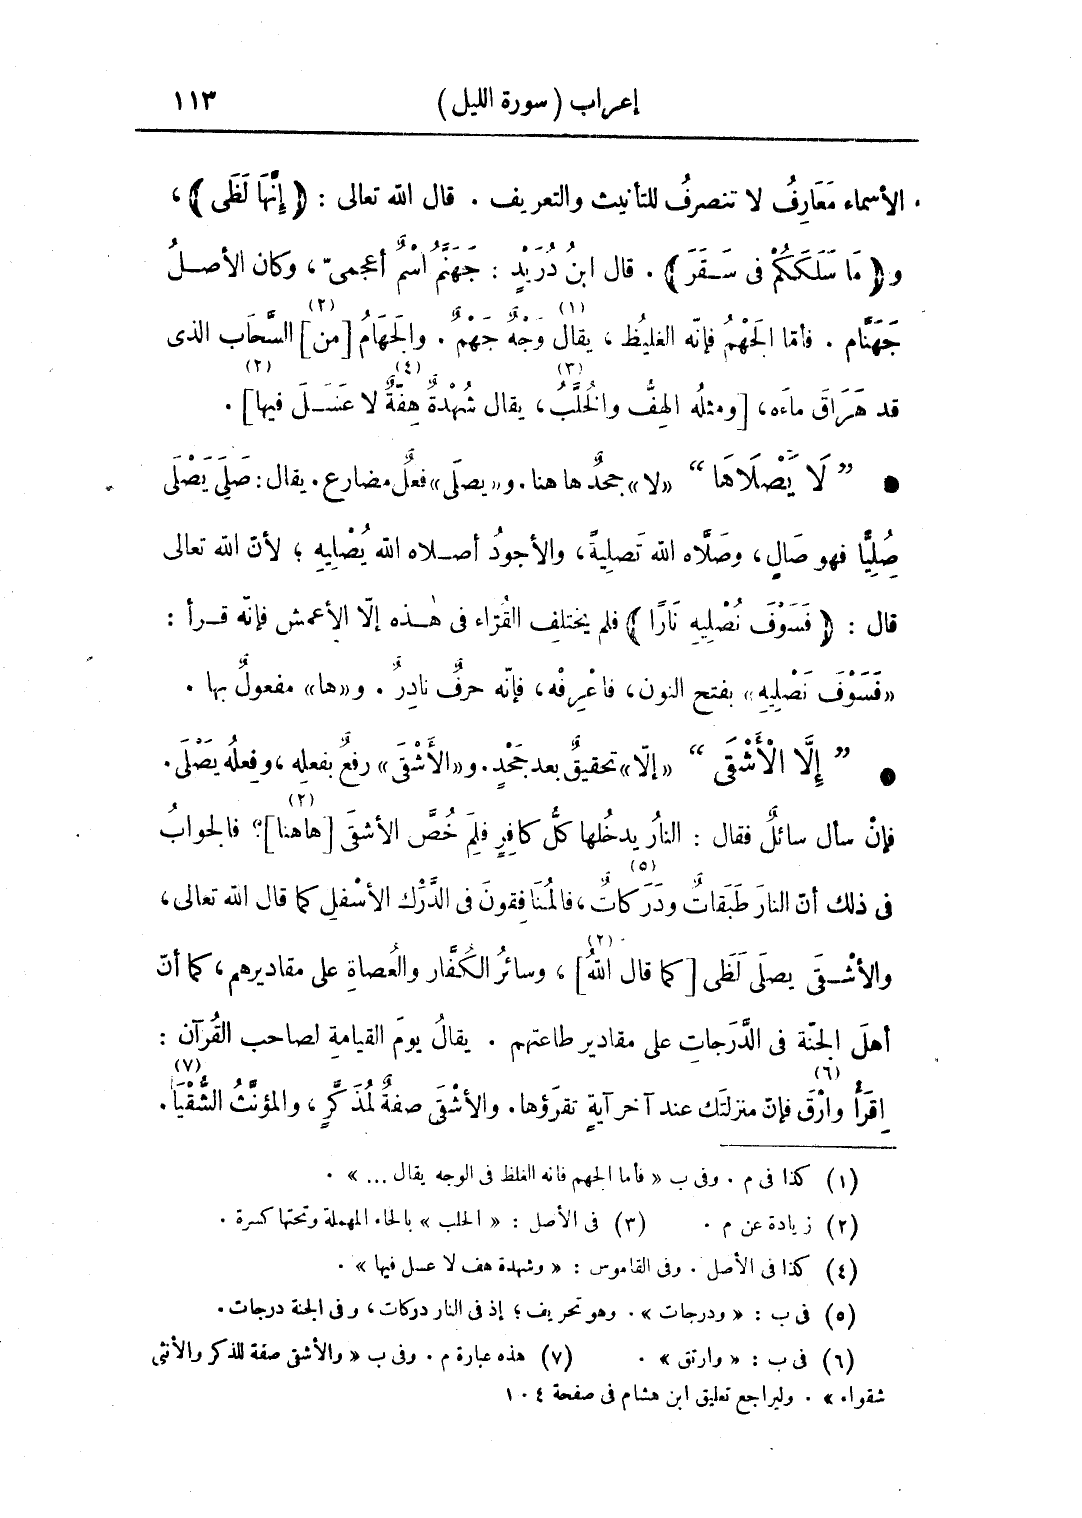 إعراب (سورة الليل) ١١٣
الأسماء مَعَارِفُ لا تنصرفُ للتأنيث والتعريف . قال الله تعالى : ﴿ إِنَّهَا لَظَى ﴾ ،
و﴿ مَا سَلَكَكُمْ فى سَقَرَ ﴾ . قال ابنُ دُرَيْدٍ : جَهَنَّمُ اسْمٌ أعجمىّ ، وكان الأصلُ
جَهَنَّام . فأمّا الجَهْمُ فإنّه الغليُظ (١) ، يقال وَجْهٌ جَهْمٌ . والجَهَامُ [من] (٢) السَّحَاب الذى
قد هَرَاقَ ماءَه ، [ومثلُه الهِفُّ والخُلَّبُ (٣) ، يقال شُهْدَةٌ هِفّةٌ (٤) لا عَسَلَ فيها] (٢) .
● ” لَا يَصْلَاهَا “ «لا» جحدٌ ها هنا . و«يصلَى» فعلٌ مضارع . يقال : صَلِيَ يَصْلَى
صُلِيًّا فهو صَالٍ ، وصَلَّاه الله تَصلِيةً ، والأجودُ أصلاه الله يُصْلِيهِ ؛ لأنّ الله تعالى
قال : ﴿ فَسَوْفَ نُصْلِيهِ نَارًا ﴾ فلم يختلف القُرّاء فى هٰذه إلّا الأعمش فإنّه قرأ :
«فَسَوْفَ نَصْلِيهِ» بفتح النون ، فاعْرِفْه ، فإنّه حرفٌ نادرٌ . و«ها» مفعولٌ بها .
● ” إِلَّا الْأَشْقَى “ «إلّا» تحقيقٌ بعد جَحْدٍ . و«الأَشْقَى» رفعٌ بفعلِه ، وفِعلُه يَصْلَى .
فإنْ سأل سائلٌ فقال : النارُ يدخُلها كلُّ كافِرٍ فلِمَ خُصَّ الأشقَى [هاهنا] (٢) ؟ فالجوابُ
فى ذلك أنّ النارَ طَبَقاتٌ ودَرَكاتٌ (٥) ، فالمُنَافِقونَ فى الدَّرْك الأسْفلِ كما قال الله تعالى ،
والأشْقَى يصلَى لَظَى [كما قال اللهُ] (٢) ، وسائرُ الكُفَّار والعُصاةِ على مقاديرهم ، كما أنّ
أهلَ الجنّة فى الدَّرَجاتِ على مقادير طاعتهم . يقالُ يومَ القيامةِ لصاحب القُرآن :
اِقرَأْ وارْقَ (٦) فإنّ منزلتَك عند آخر آيةٍ تقرَؤها . والأشْقَى صفةٌ لمُذَكَّرٍ ، والمؤنَّثُ الشُّقْيَا (٧) .
(١) كذا فى م . وفى ب « فأما الجهم فانه الغلظ فى الوجه يقال ... » .
(٢) زيادة عن م . (٣) فى الأصل : « الحلب » بالحاء المهملة وتحتها كسرة .
(٤) كذا فى الأصل . وفى القاموس : « وشهدة هف لا عسل فيها » .
(٥) فى ب : « ودرجات » . وهو تحريف ؛ إذ فى النار دركات ، وفى الجنة درجات .
(٦) فى ب : « وارتق » . (٧) هذه عبارة م . وفى ب « والأشقى صفة للذكر والأنثى
شقواء » . وليراجع تعليق ابن هشام فى صفحة ١٠٤